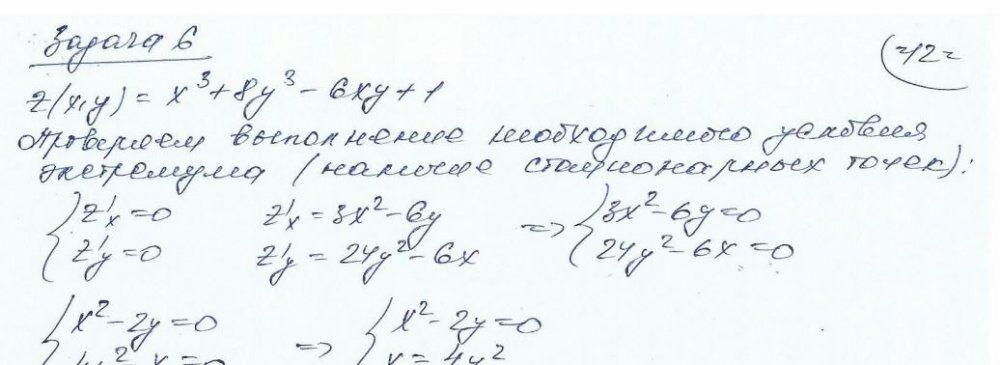 Задача 6
-12-
z(x,y) = x³ + 8y³ - 6xy + 1
Проверяем выполнение необходимого условия
экстремума (наличие стационарных точек):
{ z'x = 0   z'x = 3x² - 6y   => { 3x² - 6y = 0
{ z'y = 0   z'y = 24y² - 6x   { 24y² - 6x = 0
{ x² - 2y = 0   => { x² - 2y = 0
{ 4y² - x = 0   { x = 4y²